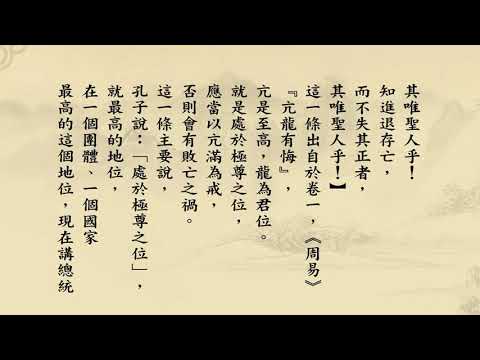 其唯聖人乎！
知進退存亡，
而不失其正者，
其唯聖人乎！】
這一條出自於卷一，《周易》
『亢龍有悔』，
亢是至高，龍為君位。
就是處於極尊之位，
應當以亢滿為戒，
否則會有敗亡之禍。
這一條主要說，
孔子說：「處於極尊之位」，
就最高的地位，
在一個團體、一個國家
最高的這個地位，現在講總統